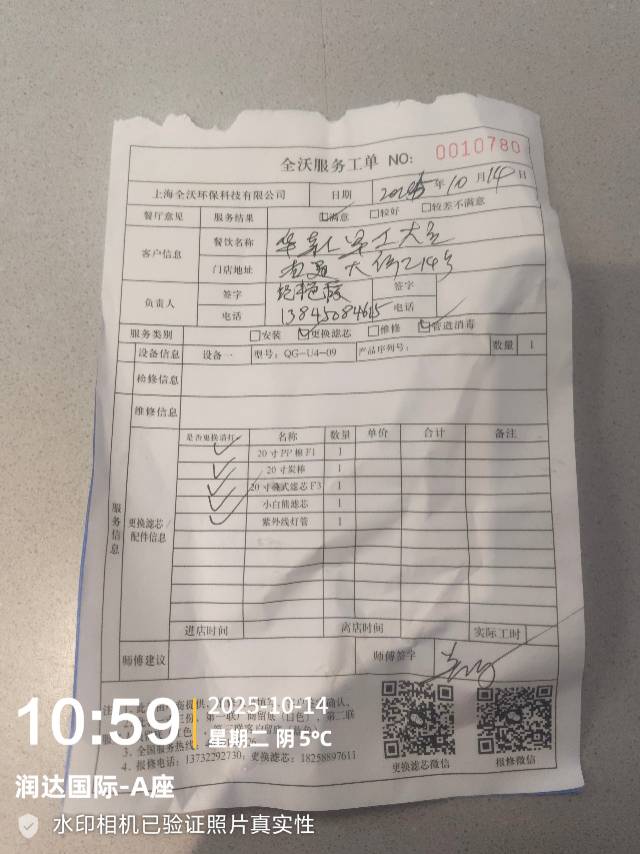 全沃服务工单 NO: 0010780
上海全沃环保科技有限公司 日期 2025年10月14日
餐厅意见 服务结果 ☑满意 □较好 □较差不满意
客户信息 餐饮名称
门店地址 大街214号
负责人 签字 签字
电话 13845084615 电话
服务类别 □安装 ☑更换滤芯 □维修 ☑管道消毒
设备信息 设备一 型号：QG-U4-09 产品序列号： 数量 1
检修信息
维修信息
服务信息
更换滤芯/配件信息
是否更换请打 名称 数量 单价 合计 备注
✓ 20寸PP棉F1 1
✓ 20寸炭棒 1
✓ 20寸 式滤芯F3 1
✓ 小白熊滤芯 1
✓ 紫外线灯管 1
进店时间 离店时间 实际工时
师傅建议 师傅签字
3、全国服务热线：
4、报修电话：13732292730；更换滤芯：18258897611
更换滤芯微信 报修微信
10:59 2025-10-14
星期二 阴 5℃
润达国际-A座
水印相机已验证照片真实性